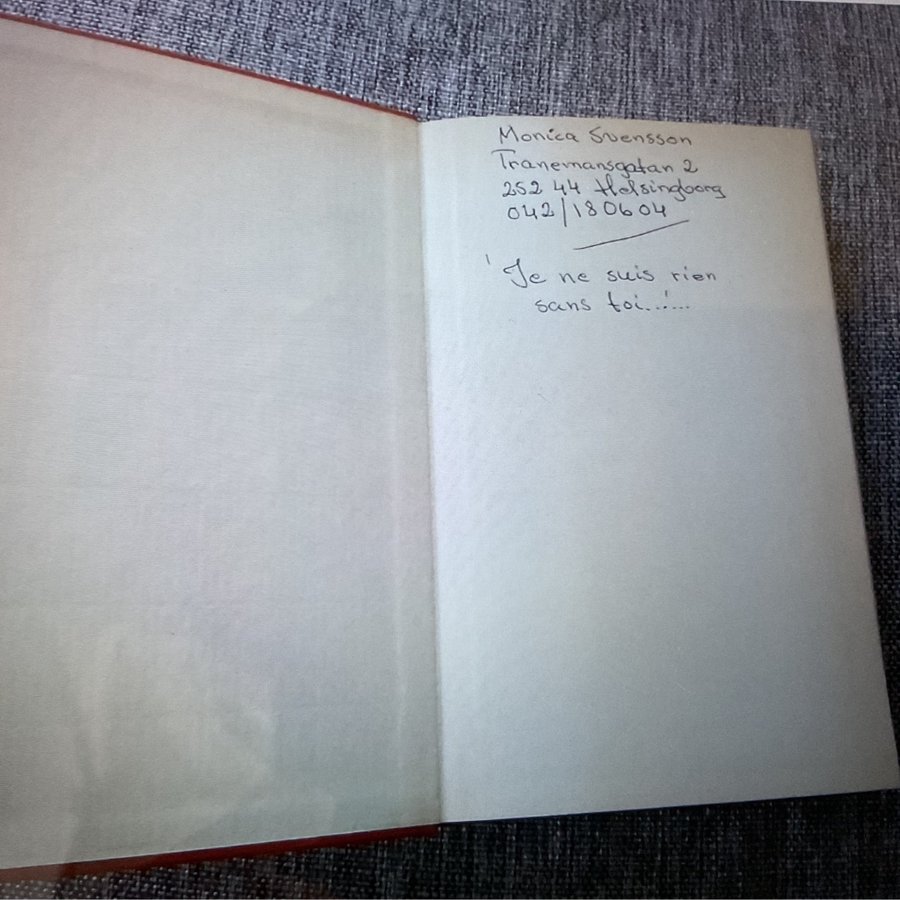 Monica Svensson
Tranemansgatan 2
252 44 Helsingborg
042/180604
'Je ne suis rien
sans toi...'...